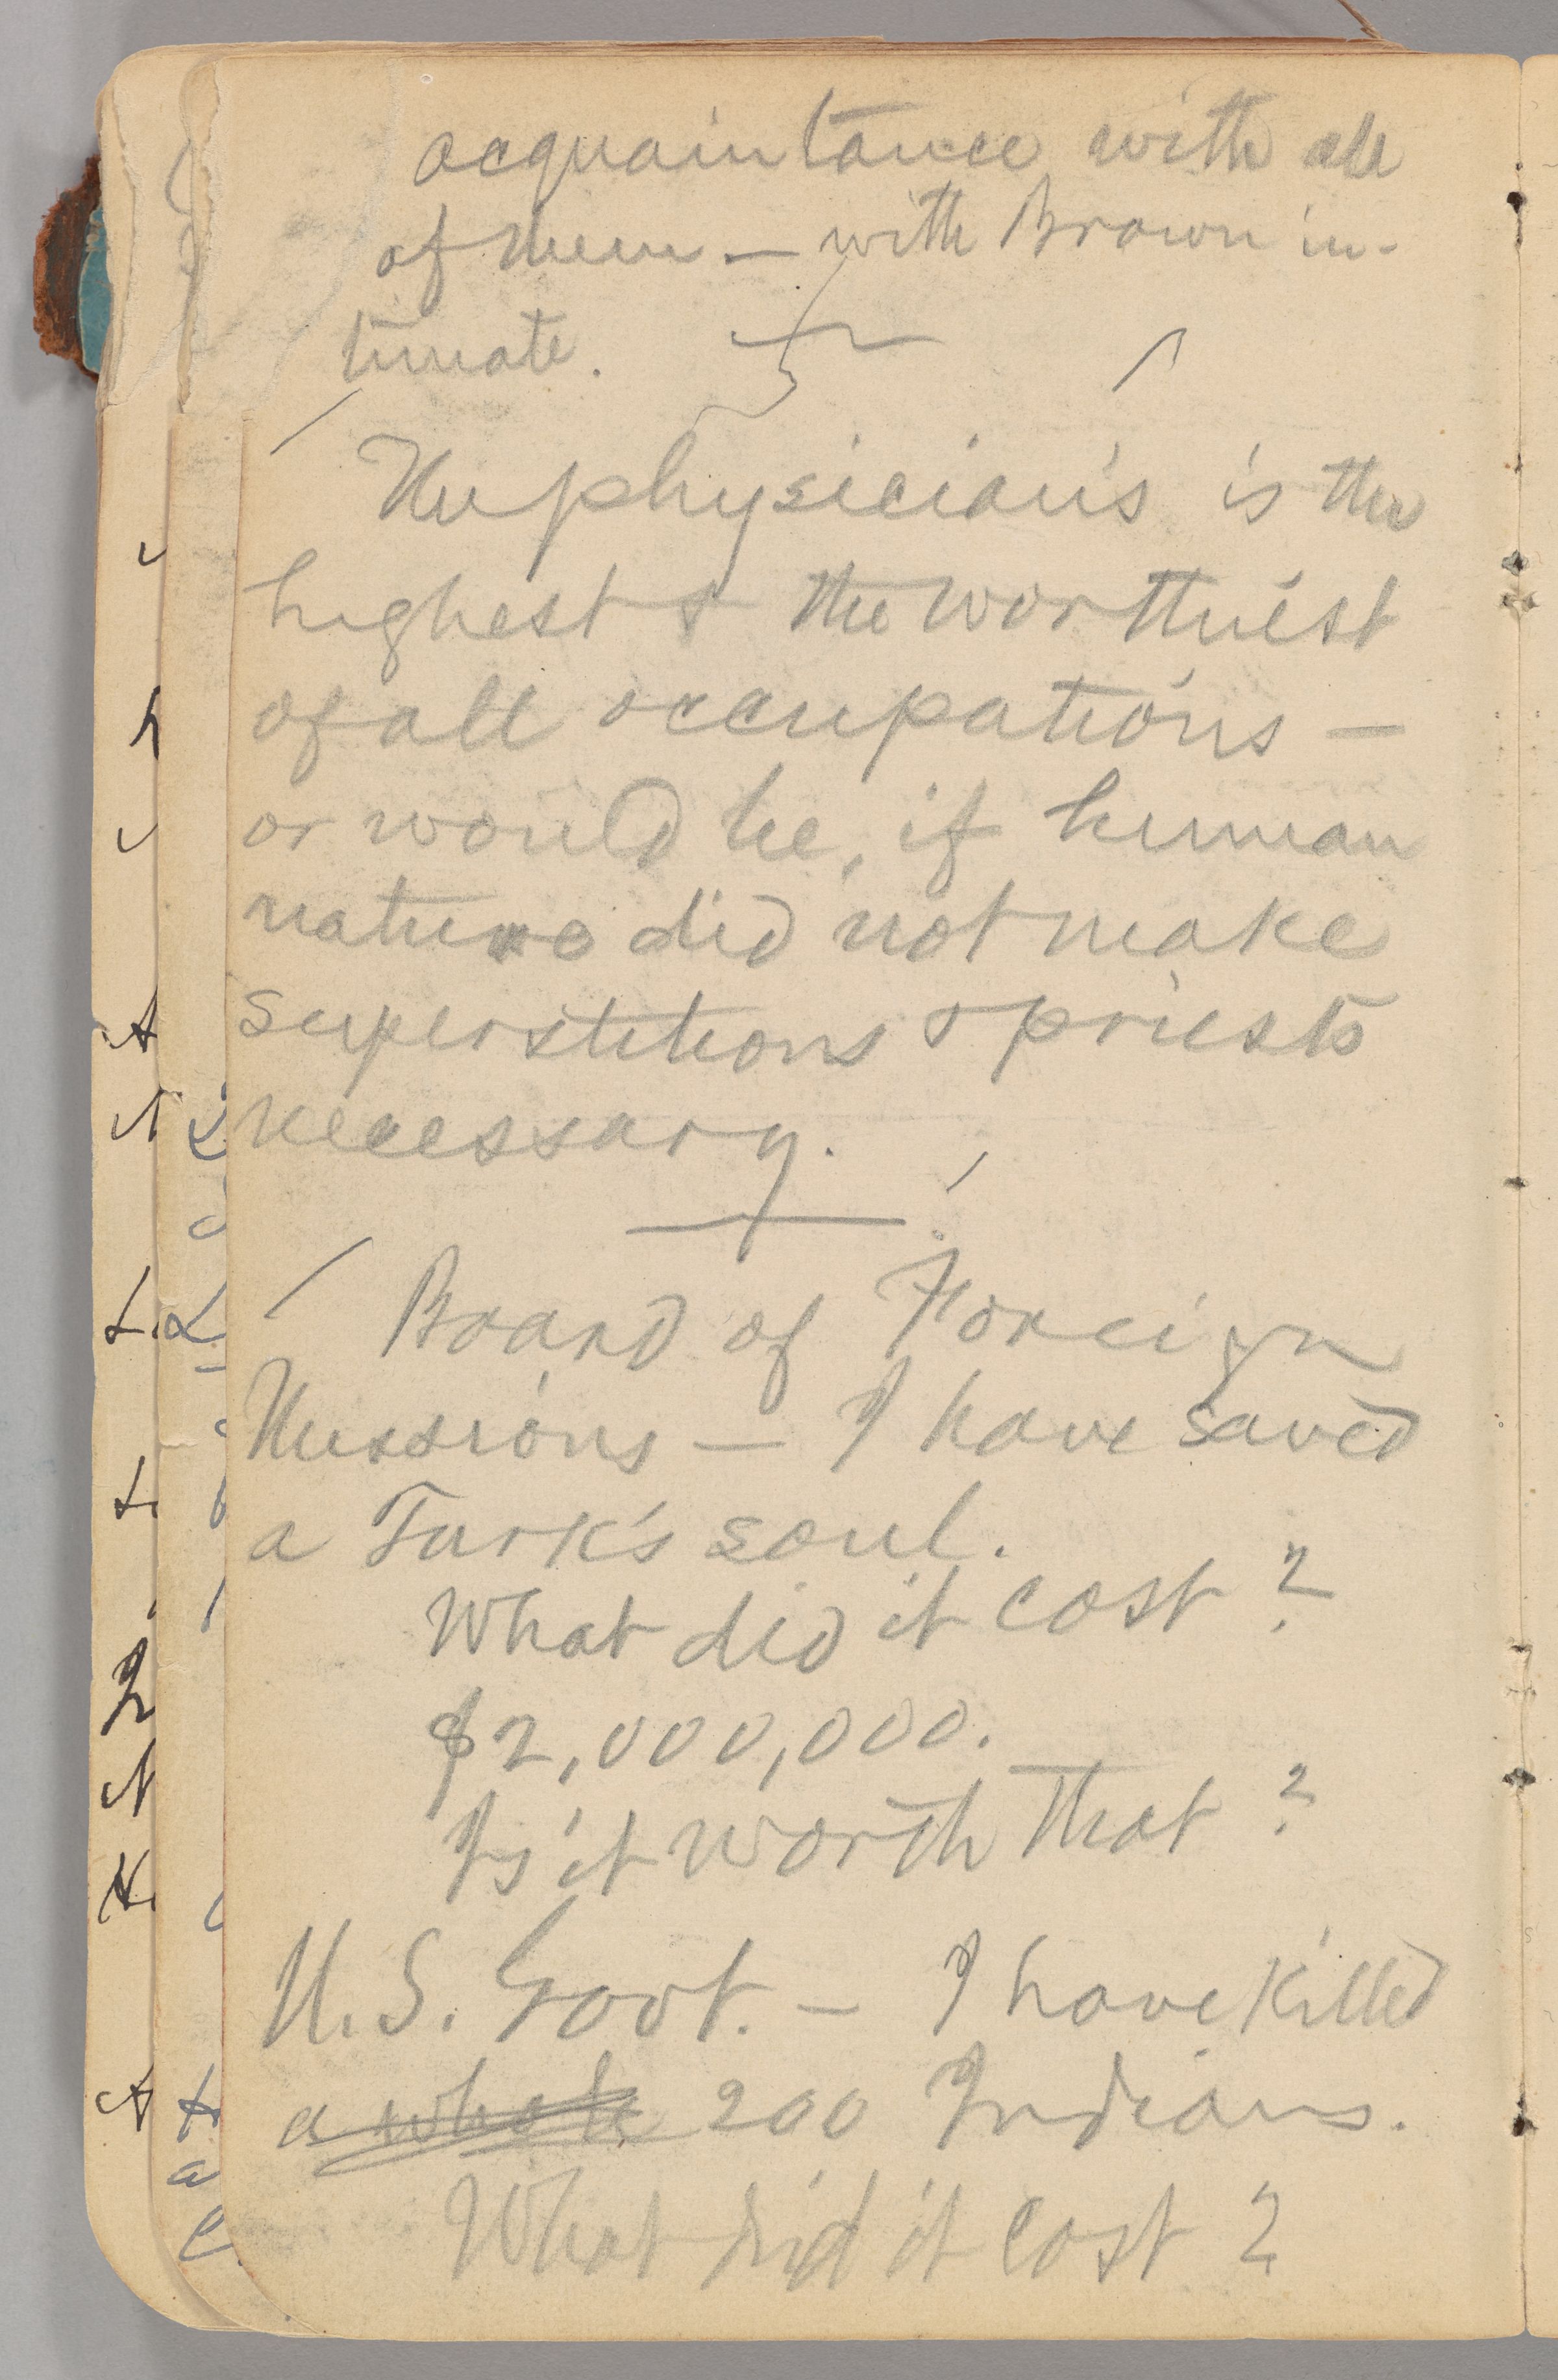 acquaintance with all
of them — with Brown in-
timate.
The physician's is the
highest & the worthiest
of all occupations —
or would be, if human
nature did not make
superstitions & priests
necessary.
Board of Foreign
Missions — I have saved
a Turk's soul.
What did it cost?
$2,000,000.
Is it worth that?
U.S. Govt. — I have killed
a whole 200 Indians.
What did it cost?